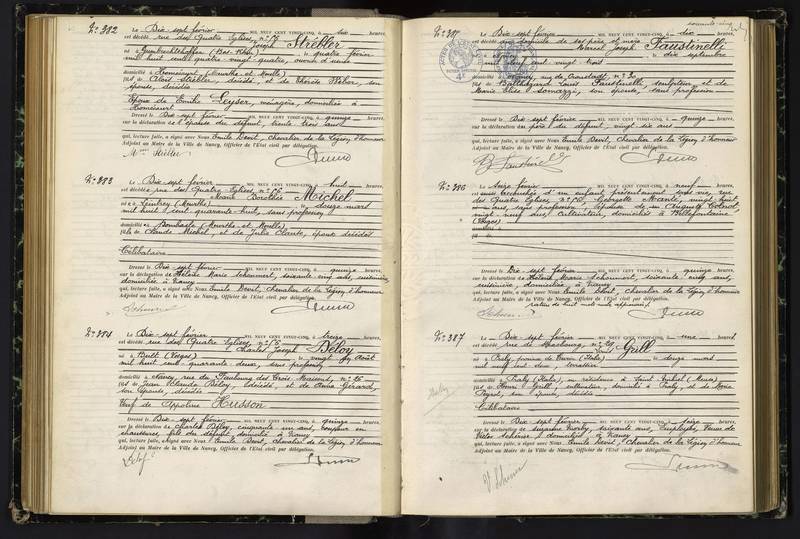 N° 382 Le Dix sept février MIL NEUF CENT VINGT-CINQ, à dix heures,
est décédé rue des Quatre Eglises, n° 17
Joseph Strebler
né à Gumbrechtshoffen (Bas Rhin) le quatre février
mil huit cent quatre vingt quatre, ouvrier d'usine
domicilié à Homécourt (Meurthe et Moselle)
fils de Aloïs Strebler, décédé, et de Thérèse son
épouse, décédée
Epoux de Emilie Leyser, ménagère, domiciliée à
Homécourt
Dressé le Dix sept février MIL NEUF CENT VINGT-CINQ, à quinze heures,
sur la déclaration de l'épouse du défunt, trente trois ans
qui, lecture faite, a signé avec Nous Emile Devit, Chevalier de la Légion d'honneur
Adjoint au Maire de la Ville de Nancy, Officier de l'Etat civil par délégation.
N° 383 Le Dix sept février MIL NEUF CENT VINGT-CINQ, à huit heures,
est décédée rue des Quatre Eglises, n° 56
Marie Dorothée Michel
née à Leintrey (Meurthe) le douze mars
mil huit cent quarante huit, sans profession
domiciliée à Dombasle (Meurthe et Moselle)
fille de Claude Michel, et de Julie Claude, époux décédés
Célibataire
Dressé le Dix sept février MIL NEUF CENT VINGT-CINQ, à quinze heures,
sur la déclaration de Hélène Marie Schouvert, soixante cinq ans, rentière,
domiciliée à Nancy
qui, lecture faite, a signé avec Nous Emile Devit, Chevalier de la Légion d'honneur
Adjoint au Maire de la Ville de Nancy, Officier de l'Etat civil par délégation.
N° 384 Le Dix sept février MIL NEUF CENT VINGT-CINQ, à treize heures,
est décédé rue des Quatre Eglises, n° 15
Charles Joseph Béloy
né à Bult (Vosges) le vingt août
mil huit cent quarante deux, sans profession
domicilié à Nancy, rue du Faubourg des Trois Maisons, n° 26
fils de Jean Claude Béloy, décédé, et de Anne Gérard,
son épouse, décédée
Veuf de Husson
Dressé le Dix sept février MIL NEUF CENT VINGT-CINQ, à quinze heures,
sur la déclaration de Charles Béloy, cinquante un ans, coupeur en
chaussures, fils du défunt, domicilié à Nancy
qui, lecture faite, a signé avec Nous Emile Devit, Chevalier de la Légion d'honneur
Adjoint au Maire de la Ville de Nancy, Officier de l'Etat civil par délégation.
soixante-cinq
Le Dix sept février MIL NEUF CENT VINGT-CINQ, à dix heures,
est décédé au domicile de ses père et mère
Marcel Joseph Faustinelli
dix septembre
mil neuf cent vingt trois
rue de Cronstadt, n° 20
fils de Balthazard Louis Faustinelli, sculpteur, et de
Marie Elise Somazzi, son épouse, sans profession
Dressé le Dix sept février MIL NEUF CENT VINGT-CINQ, à quinze heures,
sur la déclaration du père du défunt, vingt six ans
qui, lecture faite, a signé avec Nous Emile Devit, Chevalier de la Légion d'honneur
Adjoint au Maire de la Ville de Nancy, Officier de l'Etat civil par délégation.
N° 386 Le Seize février MIL NEUF CENT VINGT-CINQ, à neuf heures,
est accouchée d'un enfant présentement sans vie, rue
des Quatre Eglises, n° 56, Gabrielle vingt huit
ans, sans profession, épouse de Auguste
vingt neuf ans, cultivateur, domiciliés à Bellefontaine
(Vosges)
Dressé le Dix sept février MIL NEUF CENT VINGT-CINQ, à quinze heures,
sur la déclaration de Hélène Marie Schouvert, soixante cinq ans,
rentière, domiciliée à Nancy
qui, lecture faite, a signé avec Nous Emile Devit, Chevalier de la Légion d'honneur
Adjoint au Maire de la Ville de Nancy, Officier de l'Etat civil par délégation.
N° 387 Le Dix sept février MIL NEUF CENT VINGT-CINQ, à une heure,
est décédé rue de Strasbourg,
Louis Grill
né à Praly, province de Turin (Italie) le douze mars
mil neuf cent deux, terrassier
domicilié à Praly (Italie), en résidence à Saint Mihiel (Meuse)
fils de Henri Grill, cultivateur, domicilié à Praly, et de Marie
Peyrot, son épouse, décédée
Célibataire
Dressé le Dix sept février MIL NEUF CENT VINGT-CINQ, à seize heures,
sur la déclaration de Suzanne soixante ans, employée, Veuve de
Victor domiciliée à Nancy
qui, lecture faite, a signé avec Nous Emile Devit, Chevalier de la Légion d'honneur
Adjoint au Maire de la Ville de Nancy, Officier de l'Etat civil par délégation.